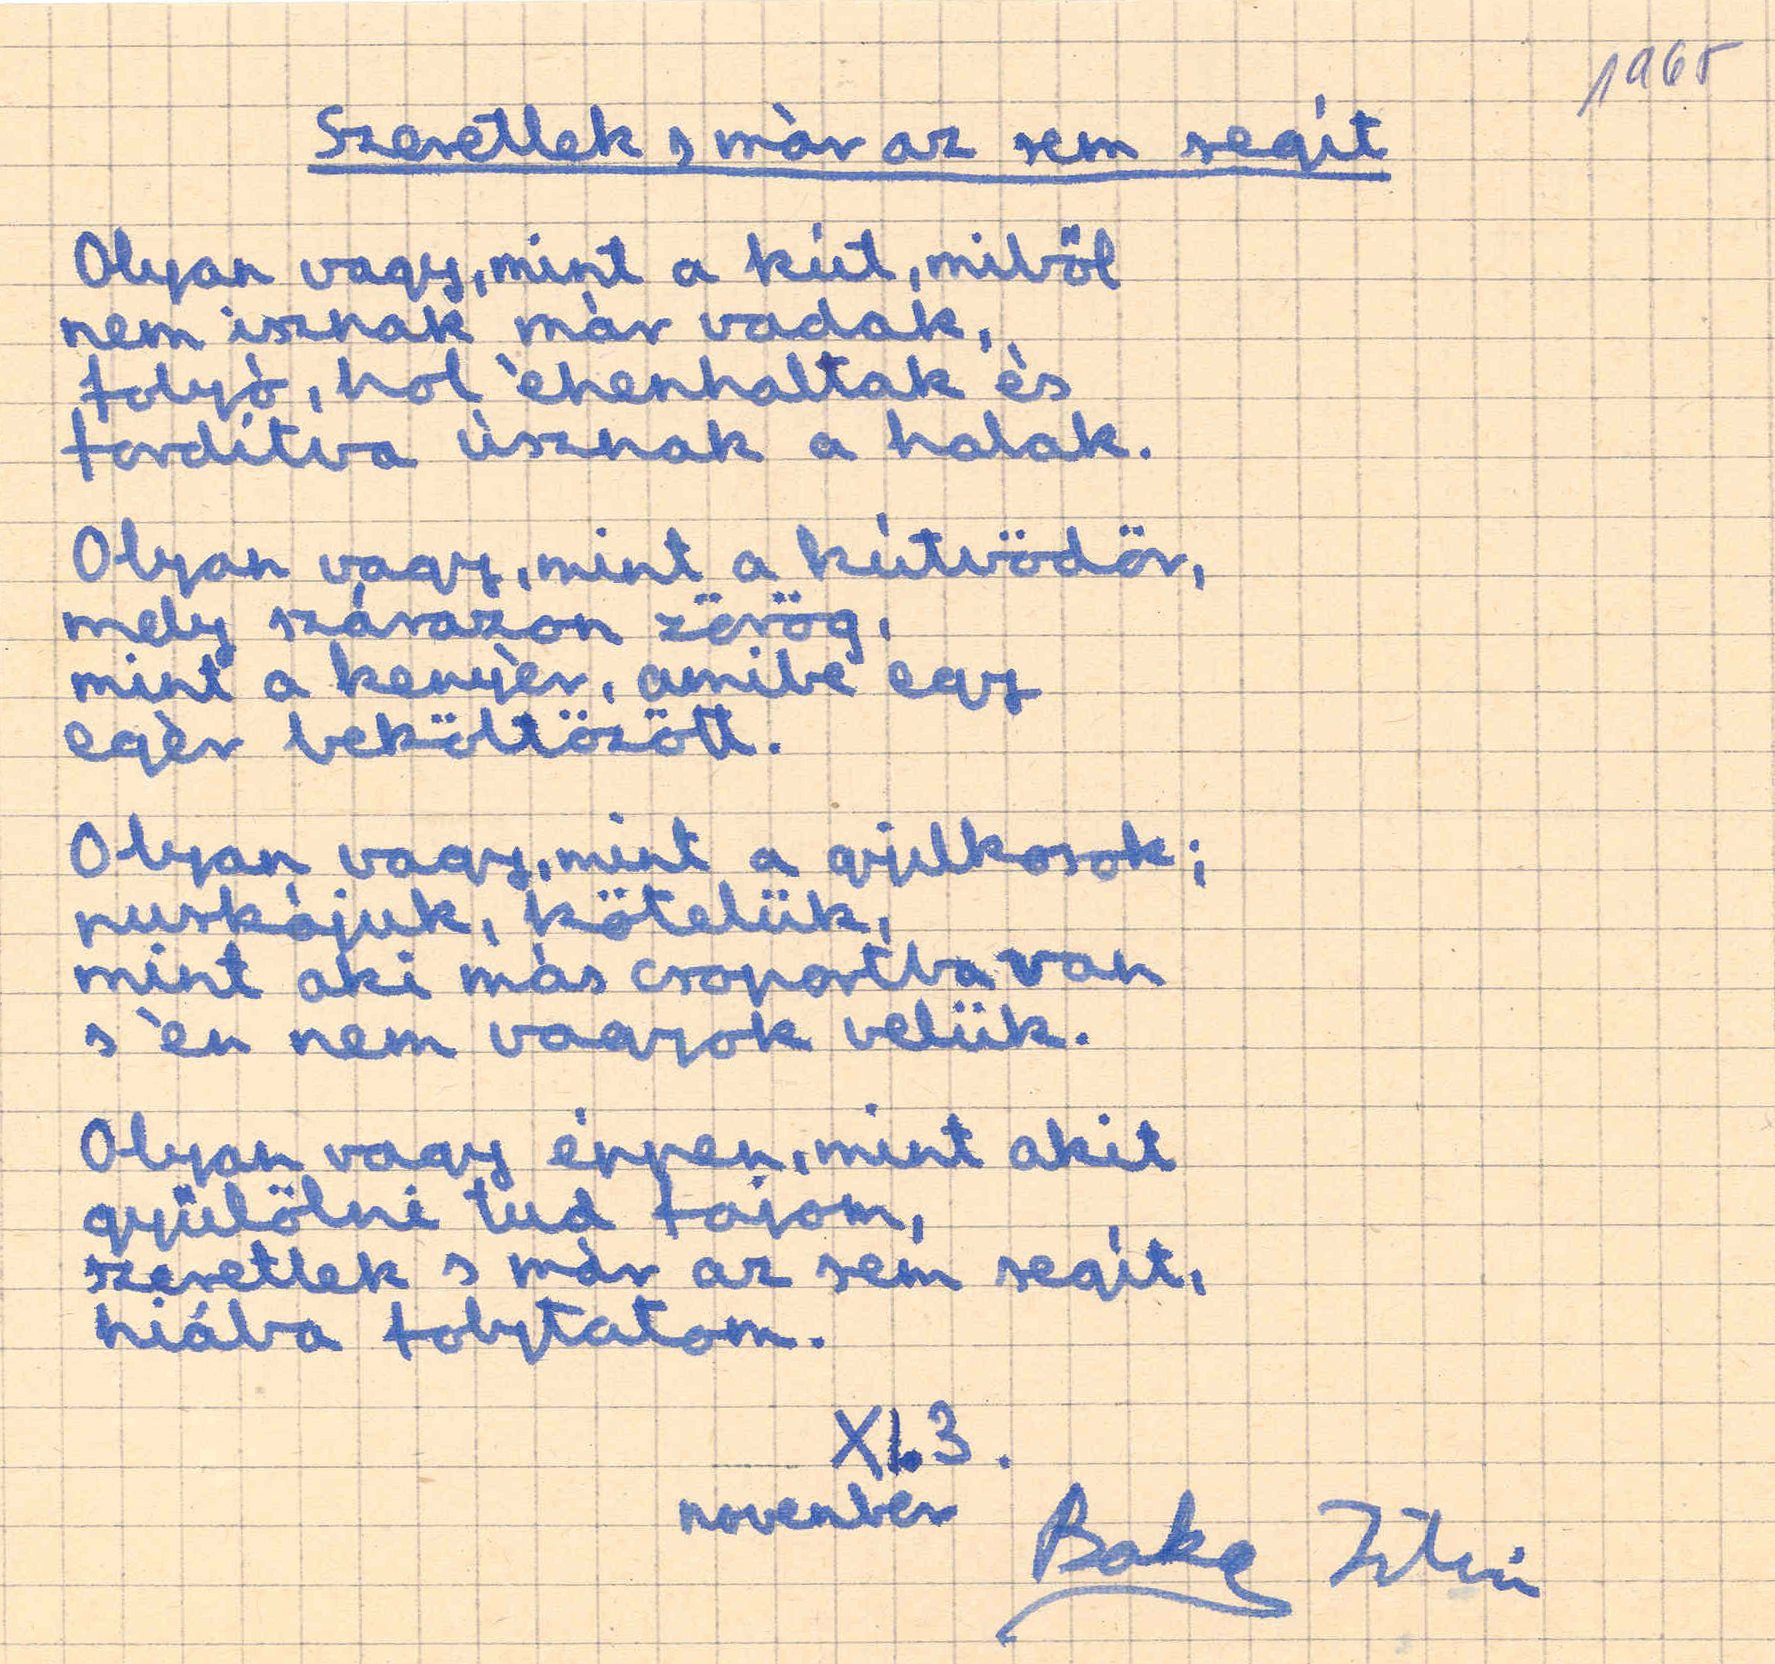 1965
Szeretlek s már az sem segít
Olyan vagy, mint a kút, miből
nem isznak már vadak,
folyó, hol éhenhaltak és
fordítva úsznak a halak.
Olyan vagy, mint a kútvödör,
mely szárazon zörög,
mint a kenyér, amibe egy
egér beköltözött.
Olyan vagy, mint a gyilkosok;
puskájuk, kötelük,
mint aki más csoportba van
s én nem vagyok velük.
Olyan vagy éppen, mint akit
gyűlölni tud fajom,
szeretlek s már az sem segít,
hiába folytatom.
XI.3.
november
Baka István